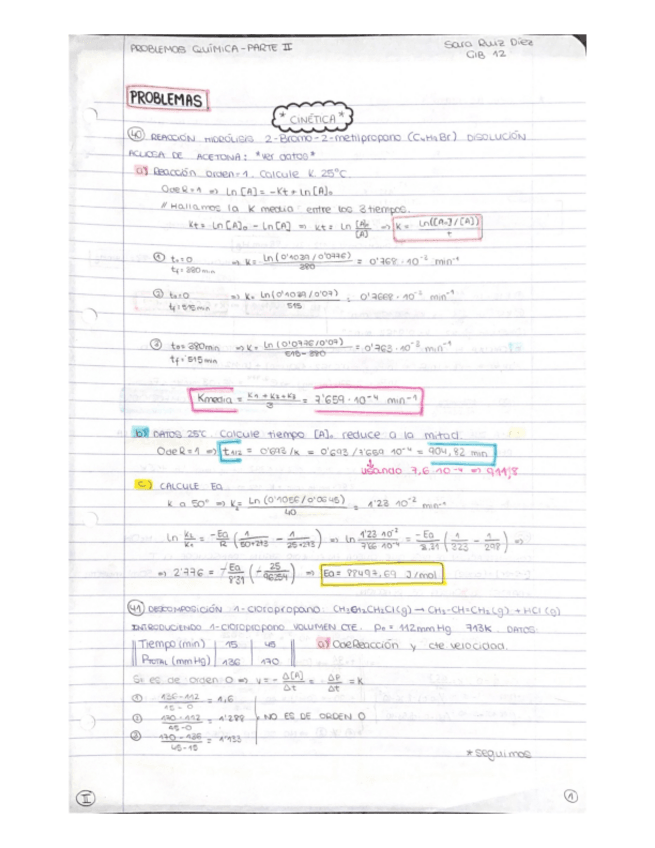 PROBLEMAS QUÍMICA-PARTE II
Sara Ruiz Díez
GIB 12
PROBLEMAS
* CINÉTICA *
40 REACCIÓN HIDRÓLISIS 2-Bromo-2-metilpropano (C4H9Br) DISOLUCIÓN
ACUOSA DE ACETONA: *ver datos*
a) Reacción orden=1. Calcule K 25°C
O de R=1 => Ln [A] = -Kt + Ln [A]₀
// Hallamos la K media entre los 3 tiempos.
Kt = Ln [A]₀ - Ln [A] => Kt = Ln [A]₀/[A] => K = Ln([A₀]/[A])/t
① t₀=0 => K = Ln (0'1039/0'0776)/380 = 0'768·10⁻³ min⁻¹
tf=380min
② t₀=0 => K = Ln (0'1039/0'07)/515 = 0'7668·10⁻³ min⁻¹
tf=515min
③ t₀=380min => K = Ln (0'0776/0'07)/515-380 = 0'763·10⁻³ min⁻¹
tf=515min
Kmedia = K1+K2+K3/3 = 7'659·10⁻⁴ min⁻¹
b) DATOS 25°C. Calcule tiempo [A]₀ reduce a la mitad.
O de R=1 => t1/2 = 0'693/K = 0'693/7'659·10⁻⁴ = 904,82 min
usando 7,6·10⁻⁴ => 911,8
c) CALCULE Ea
K a 50° => K₂ = Ln (0'1056/0'0645)/40 = 1'23·10⁻² min⁻¹
Ln K2/K1 = -Ea/R (1/50+273 - 1/25+273) => Ln 1'23·10⁻²/7'66·10⁻⁴ = -Ea/8.31 (1/323 - 1/298) =>
=> 2'776 = -Ea/8'31 (-25/96254) => Ea = 88497,69 J/mol
41 DESCOMPOSICIÓN 1-cloropropano. CH3CH2CH2Cl(g) → CH3-CH=CH2(g) + HCl(g)
INTRODUCIENDO 1-cloropropano VOLUMEN CTE. P₀ = 112mmHg 713K. DATOS:
Tiempo (min) | 15 | 45 a) O de Reacción y cte velocidad.
PTOTAL (mmHg) | 136 | 170
Si es de orden 0 => v = -Δ[A]/Δt = -ΔP/Δt = K
① 136-112/15-0 = 1,6
② 170-112/45-0 = 1'288 NO ES DE ORDEN 0
③ 170-136/45-15 = 1'133
*seguimos
II
1